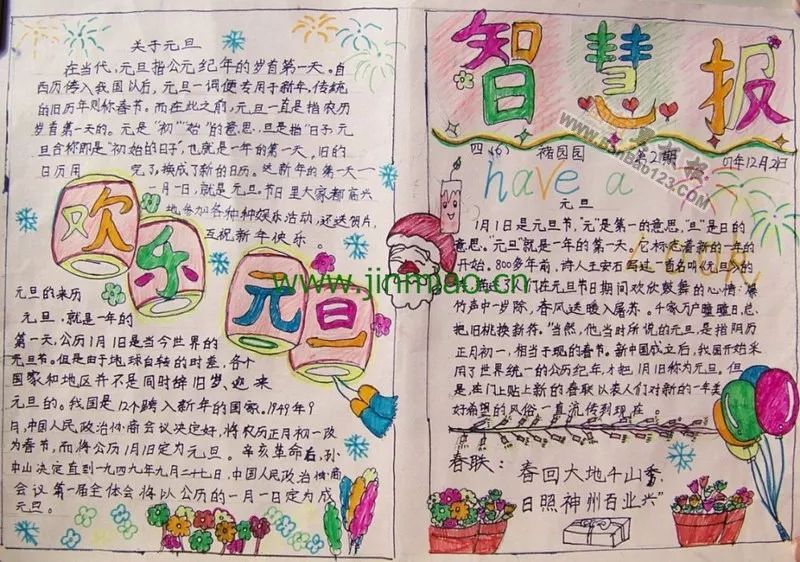 关于元旦
在当代,元旦指公元纪年的岁首第一天。自
西历传入我国以后,元旦一词便专用于新年,传统
的旧历年则称春节。而在此之前,元旦一直是指农历
岁首第一天的。元是“初”“始”的意思,旦是指“日子”元
旦合称即是“初始的日子”,也就是一年的第一天。旧的
日历用完了换成了新的日历。送新年的第一天——
一月一日,就是元旦。节日里大家都高兴
地参加各种各种娱乐活动,还送贺片,
互祝新年快乐。
欢乐元旦
元旦的来历
元旦,就是一年的
第一天,公历1月1日是当今世界的
元旦节。但是由于地球自转的时差,各个
国家和地区并不是同时辞旧岁、迎来
元旦的。我国是12个跨入新年的国家。1949年9
月,中国人民政治协商会议决定好,将农历正月初一改
为春节,而将公历1月1日定为元旦。辛亥革命后,孙
中山决定直到一九四九年九月二十七日,中国人民政治协商
会议第一届全体会将以公历的一月一日定为成
元旦。
智慧报
四(6) 褚园园 第2期 07年12月2日
have a
元旦
1月1日是元旦节,“元”是第一的意思,“旦”是日的
意思。“元旦”就是一年的第一天。它标志着新的一年的
开始。800多年前,诗人王安石写过一首名叫《元旦》的
们在元旦节日期间欢欣鼓舞的心情:爆
竹声中一岁除,春风送暖入屠苏。千家万户瞳瞳日,总
把旧桃换新符。”当然,他当时所说的元旦,是指阴历
正月初一,相当于现在的春节。新中国成立后,我国开始采
用了世界统一的公历纪年,才把1月1日称为元旦。但
是,在门上贴上新的春联以表人们对新的一年美
好希望的风俗一直流传到现在。
春联:春回大地千山秀,
日照神州百业兴”
www.jinmao.cn